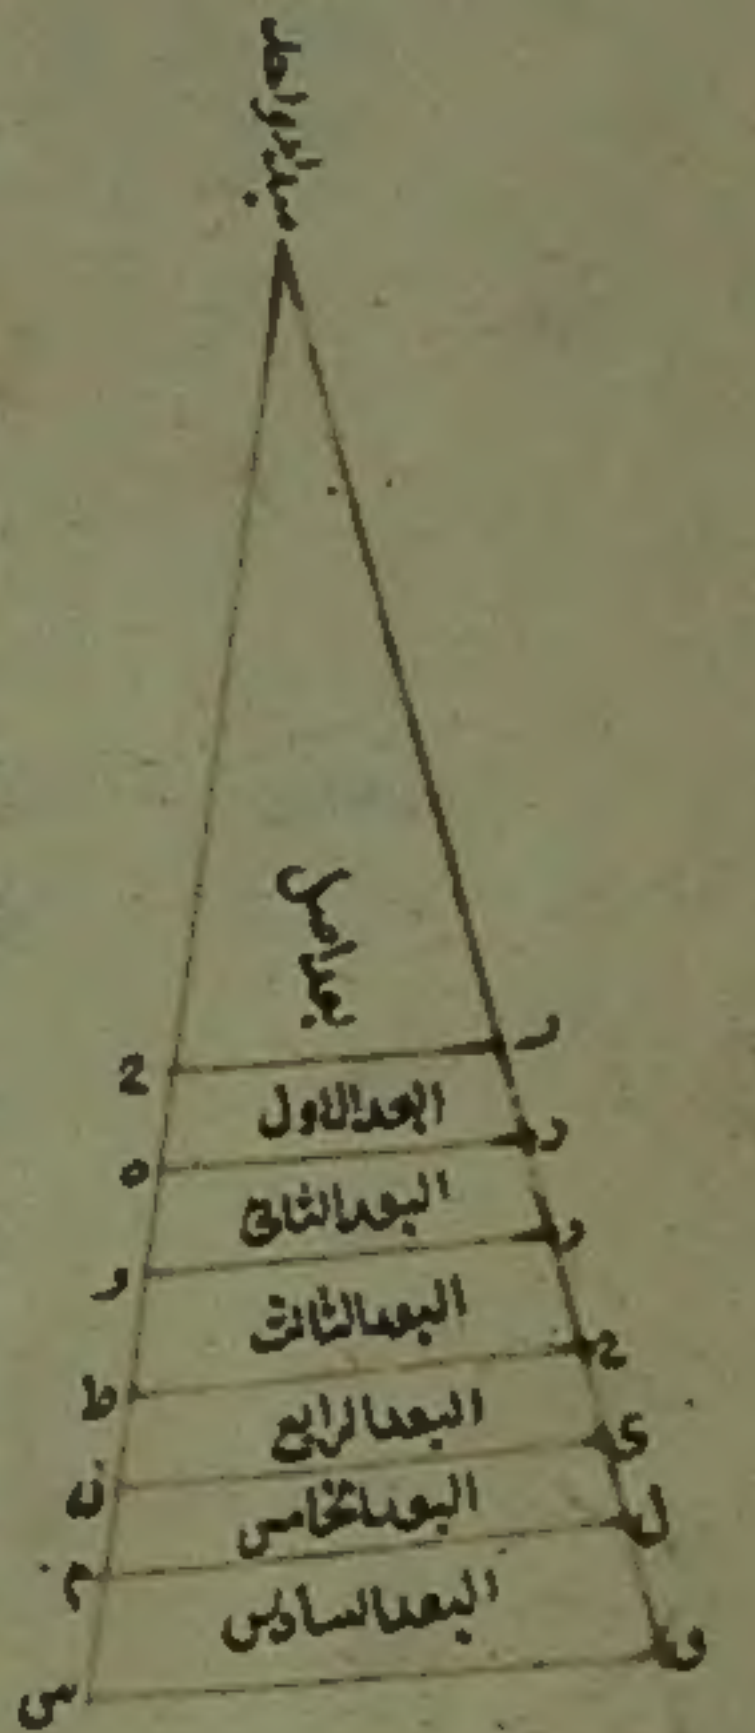 مبدا واحد
بعد اصل
البعد الاول
البعد الثانى
البعد الثالث
ط
البعد الرابع
ى
البعد الخامس
ل
م
البعد السادس
س